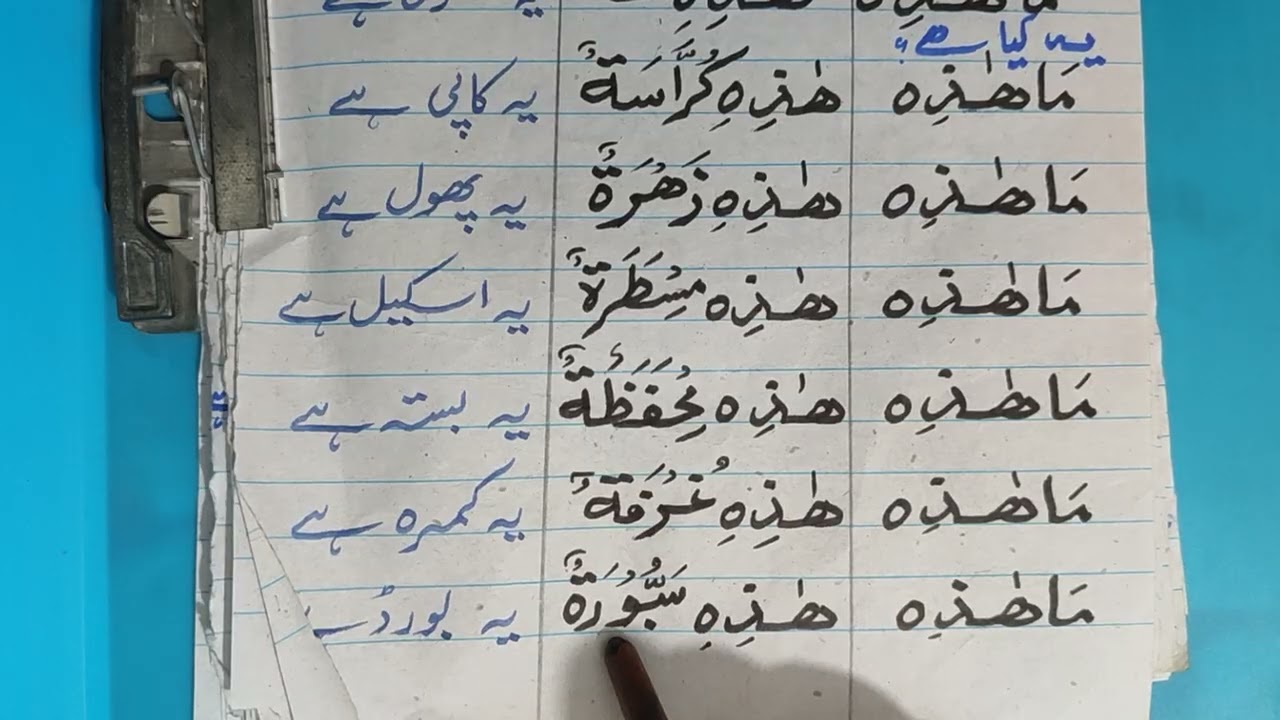 یہ کیا ہے؟
مَا هٰذِه هٰذِهِ كُرَّاسَةٌ یہ کاپی ہے
مَا هٰذِه هٰذِهِ زَهْرَةٌ یہ پھول ہے
مَا هٰذِه هٰذِه مِسْطَرَةٌ یہ اسکیل ہے
مَا هٰذِه هٰذِه مِحْفَظَةٌ یہ بستہ ہے
مَا هٰذِه هٰذِهِ غُرْفَةٌ یہ کمرہ ہے
مَا هٰذِه هٰذِهِ سَبُّوْرَةٌ یہ بورڈ